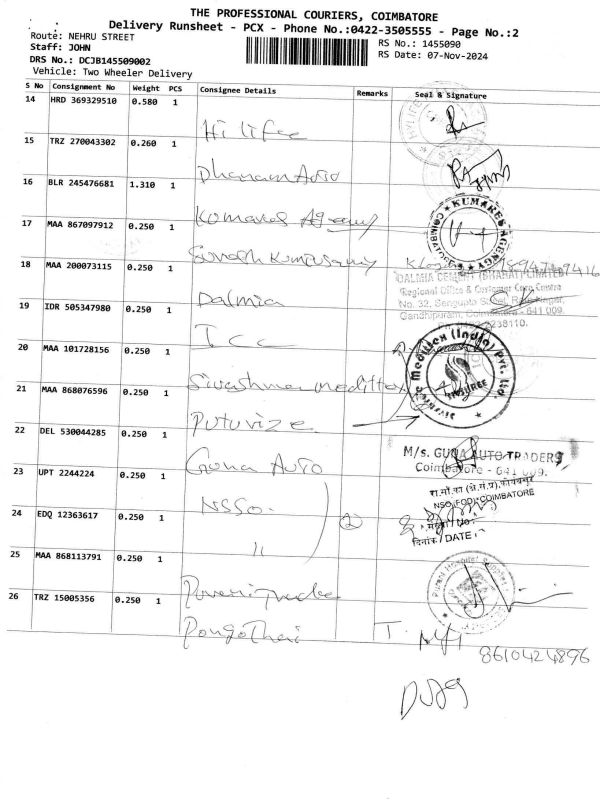 THE PROFESSIONAL COURIERS, COIMBATORE
Delivery Runsheet - PCX - Phone No.:0422-3505555 - Page No.:2
Route: NEHRU STREET
RS No.: 1455090
Staff: JOHN
RS Date: 07-Nov-2024
DRS No.: DCJB145509002
Vehicle: Two Wheeler Delivery
S No Consignment No Weight PCS Consignee Details Remarks Seal & Signature
14 HRD 369329510 0.580 1
Hi life
15 TRZ 270043302 0.260 1
Dhanam Auto
16 BLR 245476681 1.310 1
Kumares Agency
KUMARES AGENCY
COIMBATORE
17 MAA 867097912 0.250 1
18 MAA 200073115 0.250 1
DALMIA CEMENT (BHARAT) LIMITED
Regional Office & Customer Care Centre
No. 32, Sengupta Street, Ram Nagar,
Gandhipuram, Coimbatore - 641 009.
Dalmia
19 IDR 505347980 0.250 1
20 MAA 101728156 0.250 1
21 MAA 868076596 0.250 1
Puturize
22 DEL 530044285 0.250 1
M/s. GUNA AUTO TRADERS
Coimbatore - 641 009.
Guna Auto
23 UPT 2244224 0.250 1
NSSO
NSO (FOD) COIMBATORE
24 EDQ 12363617 0.250 1
दिनांक / DATE
"
25 MAA 868113791 0.250 1
26 TRZ 15005356 0.250 1
8610424896